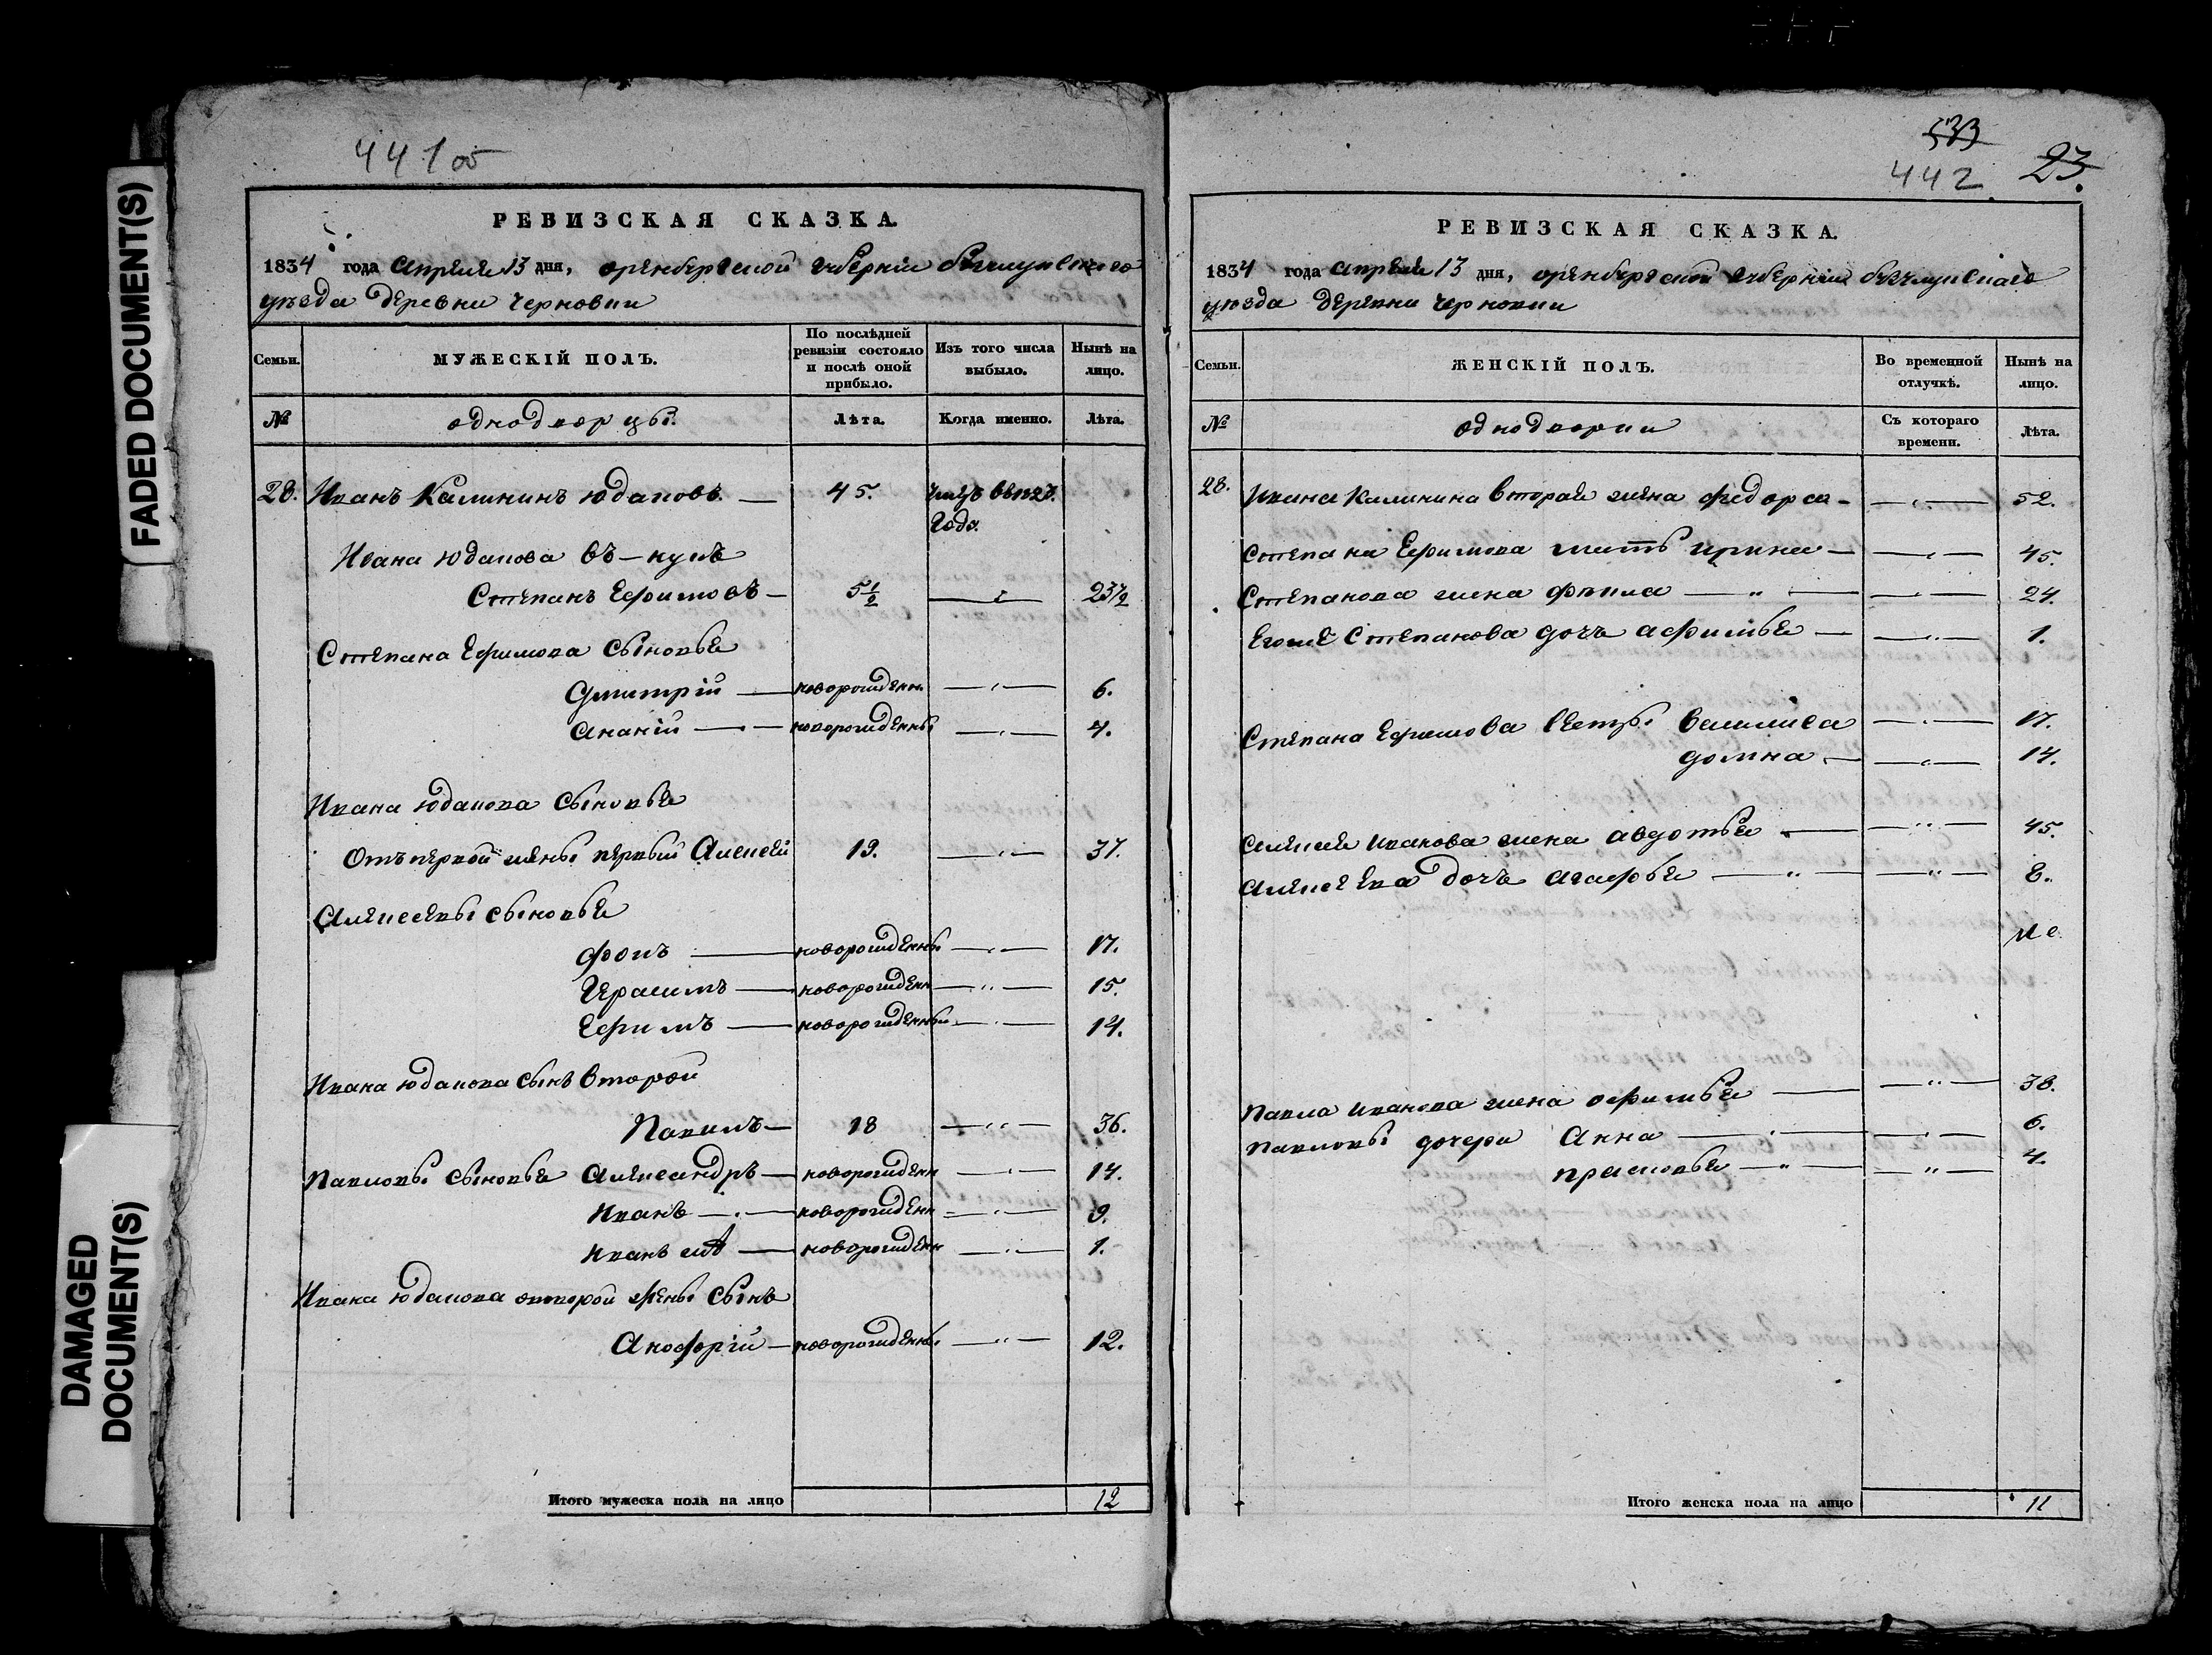 FADED DOCUMENT(S)
DAMAGED
DOCUMENT(S)
441 об
РЕВИЗСКАЯ СКАЗКА.
1834 года Апреля 13 дня, оренбургской губерніи
уезда деревни Черновки
Семьи.
МУЖЕСКІЙ ПОЛЪ.
По послѣдней ревизіи состояло и послѣ оной прибыло.
Изъ того числа выбыло.
Нынѣ на лицо.
№
однодворцы.
Лѣта.
Когда именно.
Лѣта.
28. Иванъ Калининъ Юдаковъ — 45. умеръ в
Года.
Ивана Юдакова въ-нукъ
Степанъ Ефимовъ — 5 1/2 — 23 1/2
Степана Ефимова сыновья
Дмитрій — новорожденн. — 6.
Ананій — новорожденны — 4.
Ивана Юдакова сыновья
Отъ первой жены первый Алексей 19. — 37.
Алексеевы сыновья
фокъ — новорожденны — 17.
Герасимъ — новорожденн — 15.
Ефимъ — новорожденны — 14.
Ивана Юдакова сынъ второй
Павилъ — 18 — 36.
Павловы сыновья Александръ — новорожденн — 14.
Иванъ — новорожденн — 9.
Иванъ — новорожденн — 1.
Ивана Юдакова второй жены сынъ
Анофрій — новорожденны — 12.
Итого мужеска пола на лицо 12
533
442
23.
РЕВИЗСКАЯ СКАЗКА.
1834 года Апреля 13 дня, оренбургской губерніи
уезда деревни Черновки
Семьи.
ЖЕНСКІЙ ПОЛЪ.
Во временной отлучкѣ.
Нынѣ на лицо.
№
однодворки
Съ котораго времени.
Лѣта.
28. Ивана Калинина вторая жена федорса — 52.
Степана Ефимова мать Ирина — 45.
Степанова жена фекла — 24.
Егоже Степанова дочь Афимья — 1.
Степана Ефимова сестры Василиса — 17.
домна — 14.
Алексея Иванова жена Авдотья — 45.
Алексеева дочь Агафья — 8.
Павла Иванова жена офимья — 38.
Павловы дочери Анна — 6.
Прасковья — 4.
Итого женска пола на лицо 11